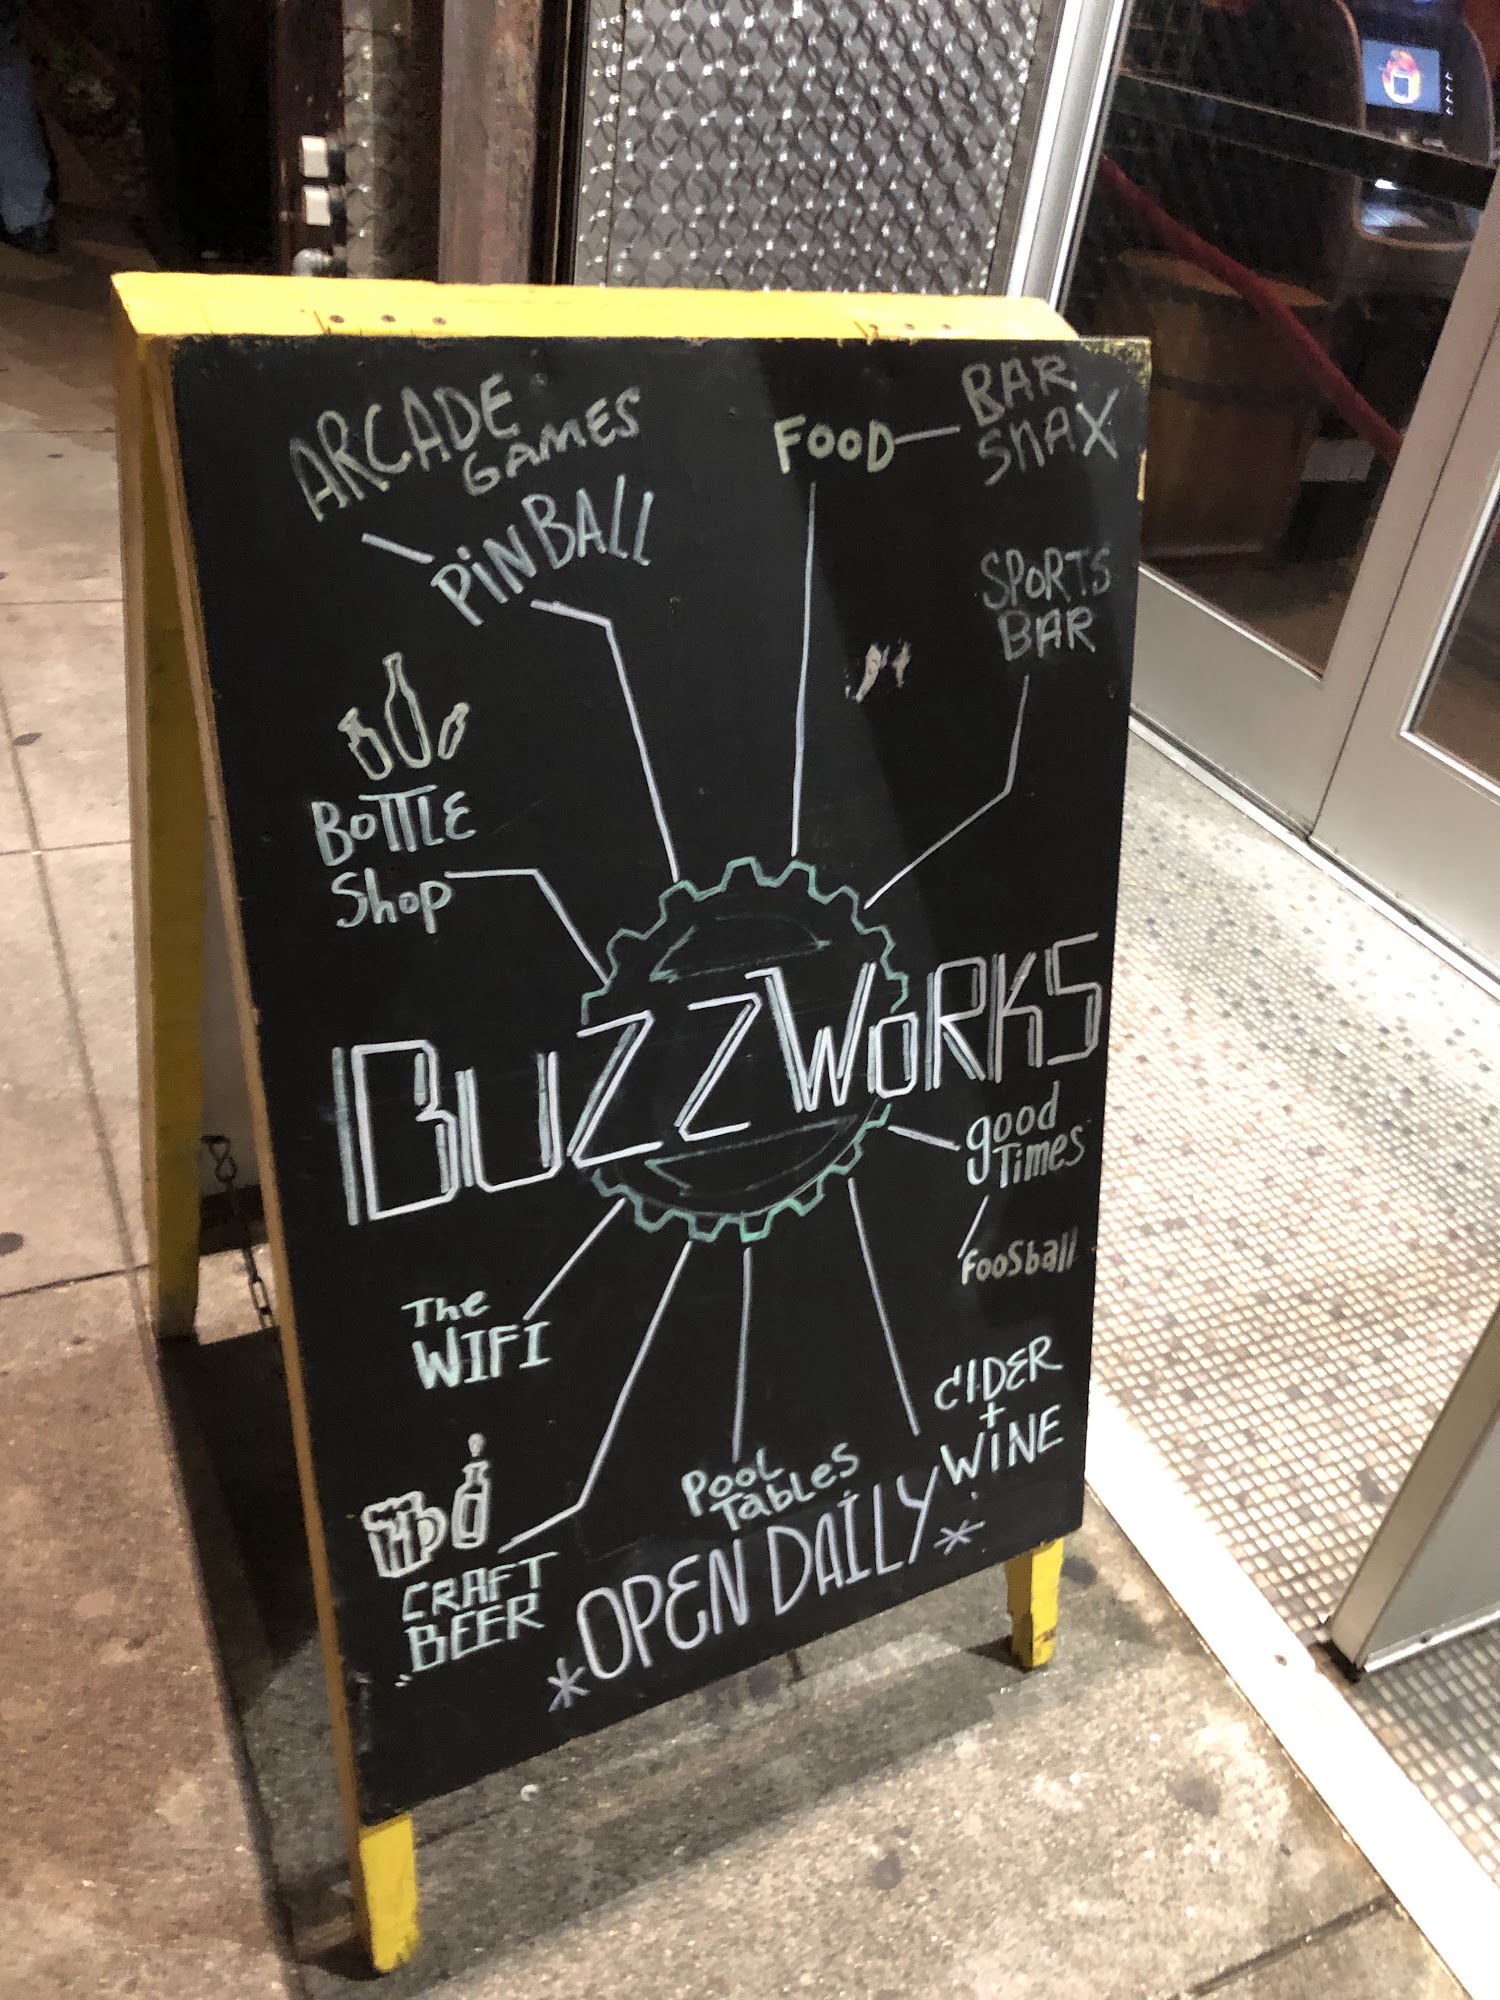 ARCADE
GAMES
PINBALL
FOOD
BAR
SNAX
SPORTS
BAR
BOTTLE
Shop
BUZZWORKS
good
Times
FOOSball
The
WIFI
CIDER
+
WINE
POOL
TABLES
CRAFT
BEER
*OPEN DAILY*